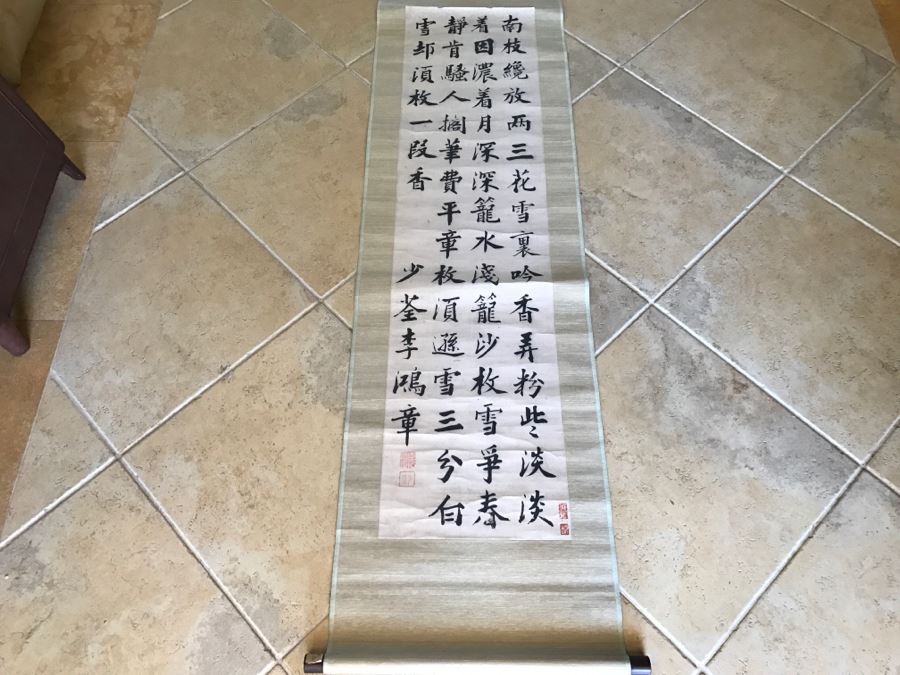 南枝纔放两三花雪裏吟香弄粉些〻淡淡
着因濃着月深深籠水淺籠沙枚雪爭春
靜肯騷人擱筆費平章枚湏遜雪三分白
雪却湏枚一段香
少荃李鴻章